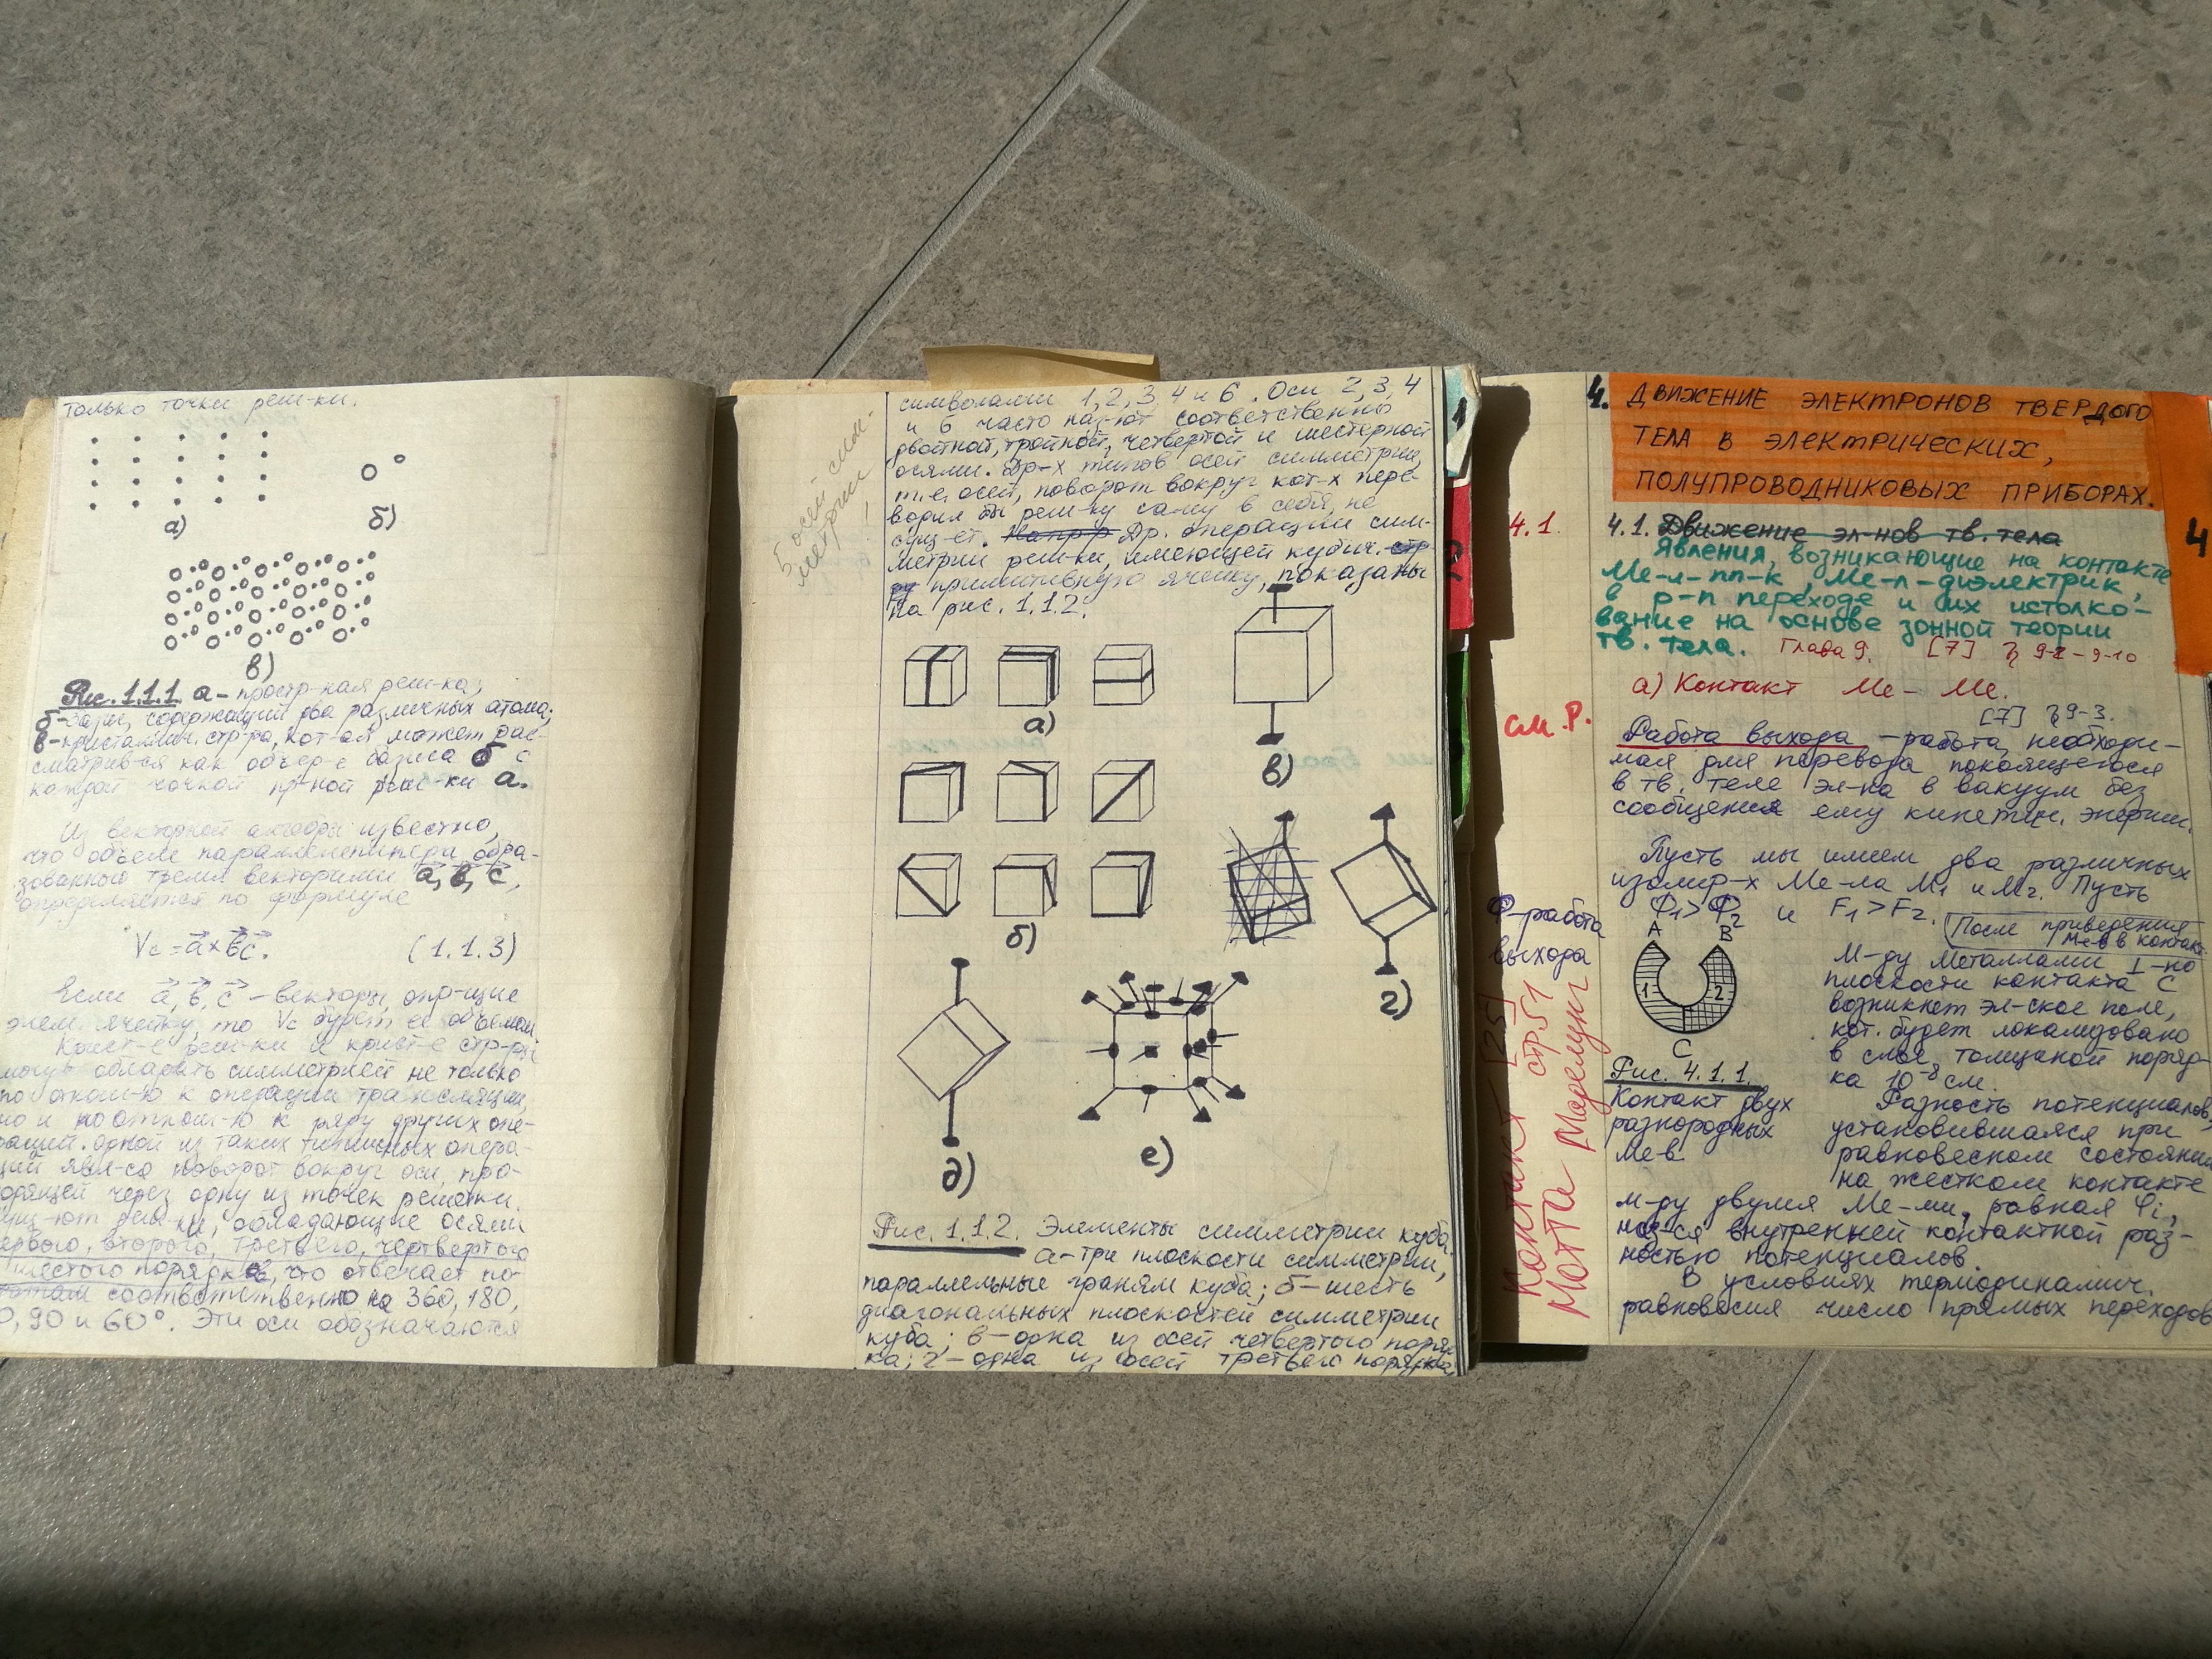 только точки реш-ки.
а)
б)
в)
Рис. 1.1.1. а - простр-ная реш-ка;
б - базис, содержащий два различных атома;
в - кристаллич. стр-ра, кот-ая может рас-
сматрив-ся как объед-е базиса б с
каждой точкой пр-ной реш-ки а.
Из векторной алгебры известно,
что объем параллелепипеда, обра-
зованного тремя векторами a, b, c,
определяется по формуле
Vc = a × bc. (1.1.3)
Если a, b, c - векторы, опр-щие
элем. ячейку, то Vc будет ее объемом.
Крист-е реш-ки и крист-е стр-ры
могут обладать симметрией не только
по отнош-ю к операции трансляции,
но и по отнош-ю к ряду других опе-
раций. Одной из таких типичных опера-
ций явл-ся поворот вокруг оси, про-
ходящей через одну из точек решетки.
Сущ-ют реш-ки, обладающие осями
первого, второго, третьего, четвертого
и шестого порядков, что отвечает по-
соответственно на 360, 180,
0, 90 и 60°. Эти оси обозначаются
5 осей сим-
метрии!
символами 1, 2, 3, 4 и 6. Оси 2, 3, 4
и 6 часто наз-ют соответственно
двойной, тройной, четверной и шестерной
осями. Др-х типов осей симметрии,
т.е. осей, поворот вокруг кот-х пере-
водил бы реш-ку саму в себя, не
сущ-ет. Напр-р Др. операции сим-
метрии реш-ки, имеющей кубич. стр-
ру примитивную ячейку, показаны
на рис. 1.1.2.
а)
в)
б)
г)
д)
е)
Рис. 1.1.2. Элементы симметрии куба.
а - три плоскости симметрии,
параллельные граням куба; б - шесть
диагональных плоскостей симметрии
куба; в - одна из осей четвертого поряд-
ка; г - одна из осей третьего порядка
1
4. ДВИЖЕНИЕ ЭЛЕКТРОНОВ ТВЕРДОГО
ТЕЛА В ЭЛЕКТРИЧЕСКИХ,
ПОЛУПРОВОДНИКОВЫХ ПРИБОРАХ.
4
4.1. 4.1. Движение эл-нов тв. тела
Явления, возникающие на контакте
Ме-л-пп-к, Ме-л-диэлектрик,
в p-n переходе и их истолко-
вание на основе зонной теории
тв. тела. Глава 9. [7] § 9-2 - 9-10
а) Контакт Ме - Ме.
[7] § 9-3.
см. Р.
Работа выхода - работа, необходи-
мая для перевода покоящегося
в тв. теле эл-на в вакуум без
сообщения ему кинетич. энергии.
Пусть мы имеем два различных
изолир-х Ме-ла М1 и М2. Пусть
Ф1 > Ф2 и F1 > F2. После приведения
Ме-в в контакт
Ф - работа
выхода
Контакт - [25]
стр 51
Мотта Маделунг
A B
1 2
C
Рис. 4.1.1.
Контакт двух
разнородных
Ме-в.
м-ду металлами ⊥-но
плоскости контакта С
возникнет эл-ское поле,
кот. будет локализовано
в слое толщиной поряд-
ка 10⁻⁸ см.
Разность потенциалов,
установившаяся при
равновесном состоянии
на жестком контакте
м-ду двумя Ме-ми, равная φi,
наз-ся внутренней контактной раз-
ностью потенциалов.
В условиях термодинамич.
равновесия число прямых переходов